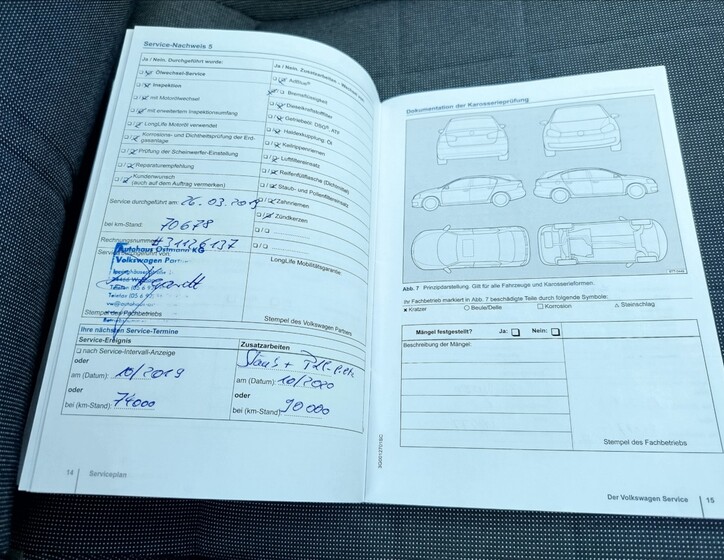 Service-Nachweis 5
Ja / Nein. Durchgeführt wurde:
Ölwechsel-Service
Inspektion
mit Motorölwechsel
mit erweitertem Inspektionsumfang
LongLife Motoröl verwendet
Korrosions- und Dichtheitsprüfung der Erd-
gasanlage
Prüfung der Scheinwerfer-Einstellung
Reparaturempfehlung
Kundenwunsch
(auch auf dem Auftrag vermerken)
Service durchgeführt am: 26.03.2019
bei km-Stand: 70678
Rechnungsnummer: #31126137
Service durchgeführt von:
Autohaus Ostmann KG
Volkswagen Partner
Stempel des Fachbetriebs
Ja / Nein. Zusatzarbeiten
AdBlue®
Bremsflüssigkeit
Dieselkraftstofffilter
Getriebeöl: DSG®, ATF
Haldexkupplung: Öl
Keilrippenriemen
Luftfiltereinsatz
Reifenfüllflasche (Dichtmittel)
Staub- und Pollenfiltereinsatz
Zahnriemen
Zündkerzen
LongLife Mobilitätsgarantie:
Stempel des Volkswagen Partners
Ihre nächsten Service-Termine
Service-Ereignis
nach Service-Intervall-Anzeige
oder
am (Datum): 10/2019
oder
bei (km-Stand): 74000
Zusatzarbeiten
am (Datum): 10/2020
oder
bei (km-Stand): 90000
14 Serviceplan
Dokumentation der Karosserieprüfung
Abb. 7 Prinzipdarstellung. Gilt für alle Fahrzeuge und Karosserieformen.
Ihr Fachbetrieb markiert in Abb. 7 beschädigte Teile durch folgende Symbole:
× Kratzer ○ Beule/Delle □ Korrosion △ Steinschlag
Mängel festgestellt? Ja: Nein:
Beschreibung der Mängel:
Stempel des Fachbetriebs
Der Volkswagen Service 15